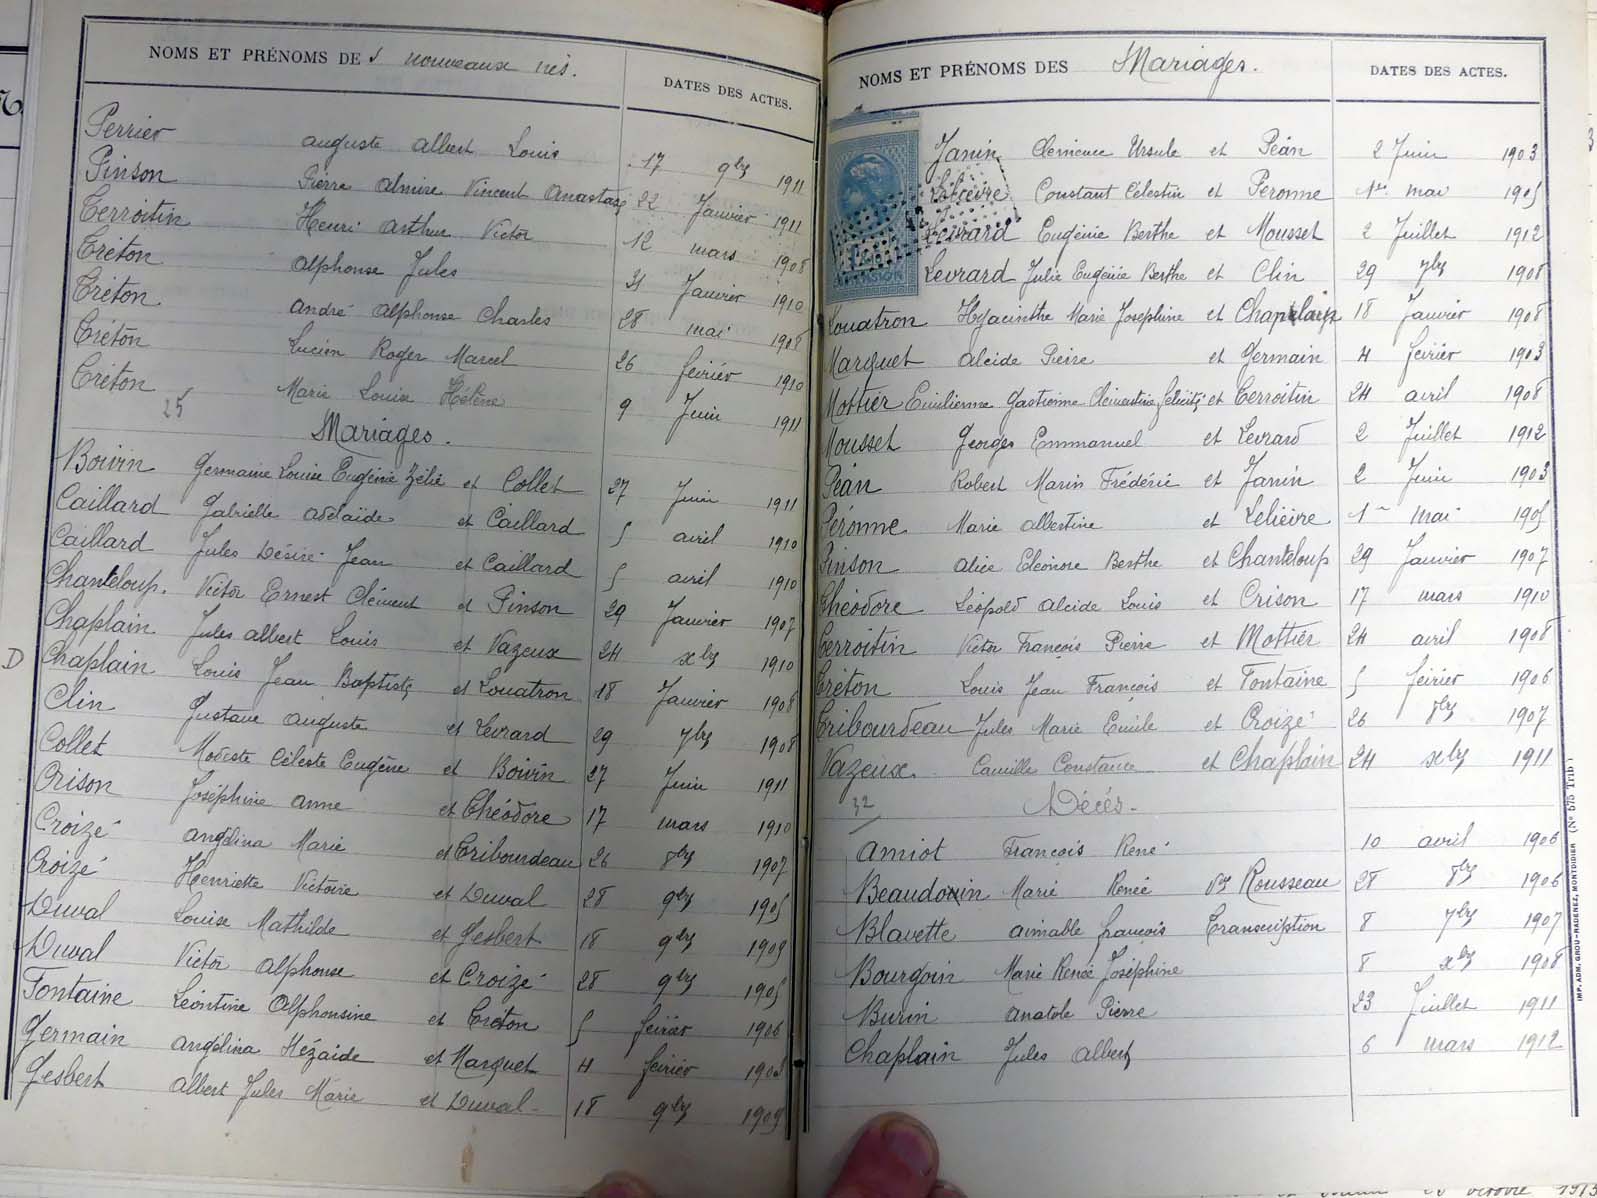 NOMS ET PRÉNOMS DES nouveaux nés. DATES DES ACTES.
Perrier auguste albert Louis 17 9bre 1911
Pinson Pierre almire Vincent Anastase 22 Janvier 1911
Terroitin Henri arthur Victor 12 mars 1908
Tréton alphonse Jules 31 Janvier 1910
Tréton andré alphonse Charles 28 mai 1908
Tréton Lucien Roger Marcel 26 février 1910
Tréton Marie Louise Hélène 9 Juin 1911
25
Mariages.
Boivin Germaine Louise Eugénie Zélie et Collet 27 Juin 1911
Caillard Gabrielle adelaïde et Caillard 5 avril 1910
Caillard Jules Désiré Jean et Caillard 5 avril 1910
Chanteloup. Victor Ernest Clément et Pinson 29 Janvier 1907
Chaplain Jules albert Louis et Vazeux 24 xbre 1910
D Chaplain Louis Jean Baptiste et Louatron 18 Janvier 1908
Clin Gustave auguste et Levrard 29 7bre 1908
Collet Modeste Céleste Eugène et Boivin 27 Juin 1911
Crison Joséphine anne et Théodore 17 mars 1910
Croizé angélina Marie et Tribourdeau 26 8bre 1907
Croizé Henriette Victoire et Duval 28 9bre 1905
Duval Louise Mathilde et Gesbert 18 9bre 1909
Duval Victor alphonse et Croizé 28 9bre 1905
Fontaine Léontine Alphonsine et Tréton 5 février 1906
Germain angélina Hézaïde et Marquet 4 février 1903
Gesbert albert Jules Marie et Duval 18 9bre 1909
NOMS ET PRÉNOMS DES Mariages. DATES DES ACTES.
Janin Clémence Ursule et Péan 2 Juin 1903
Lelièvre Constant Célestin et Peronne 1er mai 1905
Levrard Eugénie Berthe et Mousset 2 Juillet 1912
Levrard Julie Eugénie Berthe et Clin 29 7bre 1908
Louatron Hyacinthe Marie Joséphine et Chaplain 18 Janvier 1908
Marquet alcide Pierre et Germain 4 février 1903
Mottier Emilienne Gastienne Clémentine Félicité et Terroitin 24 avril 1908
Mousset Georges Emmanuel et Levrard 2 Juillet 1912
Péan Robert Marin Frédéric et Janin 2 Juin 1903
Péronne Marie albertine et Lelièvre 1er mai 1905
Pinson alice Eléonore Berthe et Chanteloup 29 Janvier 1907
Théodore Léopold alcide Louis et Crison 17 mars 1910
Terroitin Victor François Pierre et Mottier 24 avril 1908
Tréton Louis Jean François et Fontaine 5 février 1906
Tribourdeau Jules Marie Emile et Croizé 26 8bre 1907
Vazeux Camille Constance et Chaplain 24 xbre 1911
32 Décés.
Amiot François René 10 avril 1906
Beaudouin Marie Renée Ve Rousseau 28 8bre 1906
Blavette aimable françois Transcription 8 7bre 1907
Bourgoin Marie Renée Joséphine 8 xbre 1908
Burin anatole Pierre 23 Juillet 1911
Chaplain Jules Albert 6 mars 1912
IMP. ADM. GROU-RADENEZ, MONTDIDIER (No 575 Trib.)
octobre 1913